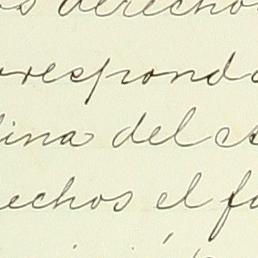 os derechos
orresponda
lina del es
echos el fa